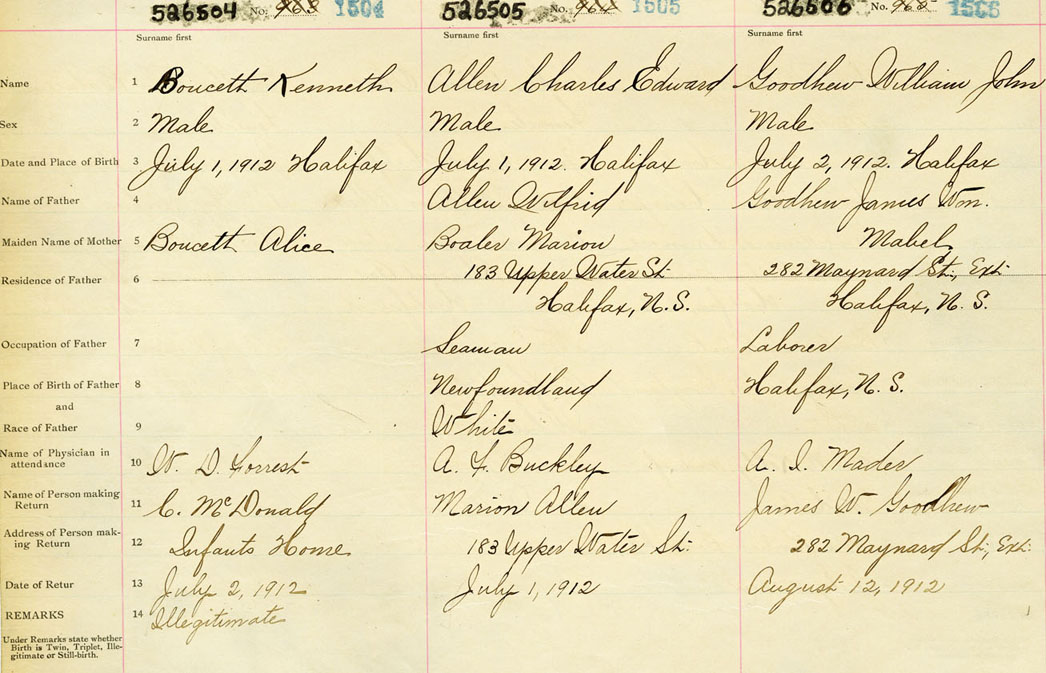 526504 No. 963 1504 526505 No. 964 1505 526506 No. 965 1506
Surname first Surname first Surname first
Name 1 Boucett Kenneth Allen Charles Edward Goodhew William John
Sex 2 Male Male Male
Date and Place of Birth 3 July 1, 1912 Halifax July 1, 1912. Halifax July 2, 1912. Halifax
Name of Father 4 Allen Wilfrid Goodhew James Wm.
Maiden Name of Mother 5 Boucett Alice Boaler Marion Mabel
Residence of Father 6 183 Upper Water St. 282 Maynard St., Ext.
Halifax, N.S. Halifax, N.S.
Occupation of Father 7 Seaman Laborer
Place of Birth of Father 8 Newfoundland Halifax, N.S.
and
Race of Father 9 White
Name of Physician in
attendance 10 W. D. Forrest A. F. Buckley A. I. Mader
Name of Person making
Return 11 C. McDonald Marion Allen James W. Goodhew
Address of Person mak-
ing Return 12 Infants Home 183 Upper Water St. 282 Maynard St., Ext.
Date of Retur 13 July 2, 1912 July 1, 1912 August 12, 1912
REMARKS 14 Illegitimate
Under Remarks state whether
Birth is Twin, Triplet, Ille-
gitimate or Still-birth.